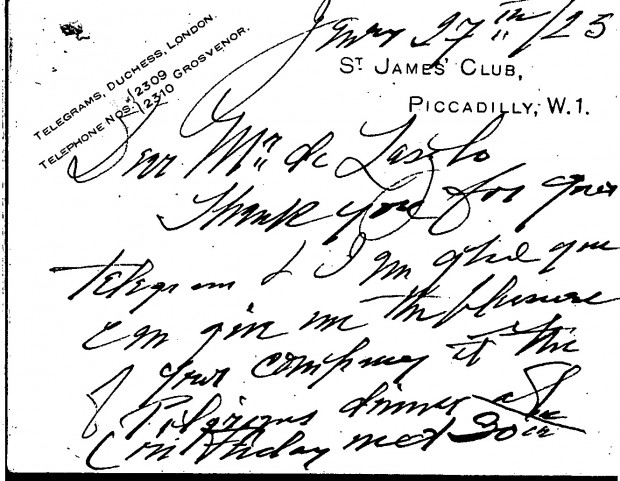 TELEGRAMS, DUCHESS, LONDON.
TELEPHONE NOS. 2309
2310 GROSVENOR.
Jany 27th/25
ST JAMES' CLUB,
PICCADILLY, W.1.
Dear Mr de Laszlo
Thank you for your
telegram & I am glad you
can give me the pleasure
of your company at the
Pilgrims dinner
on Friday next 30th